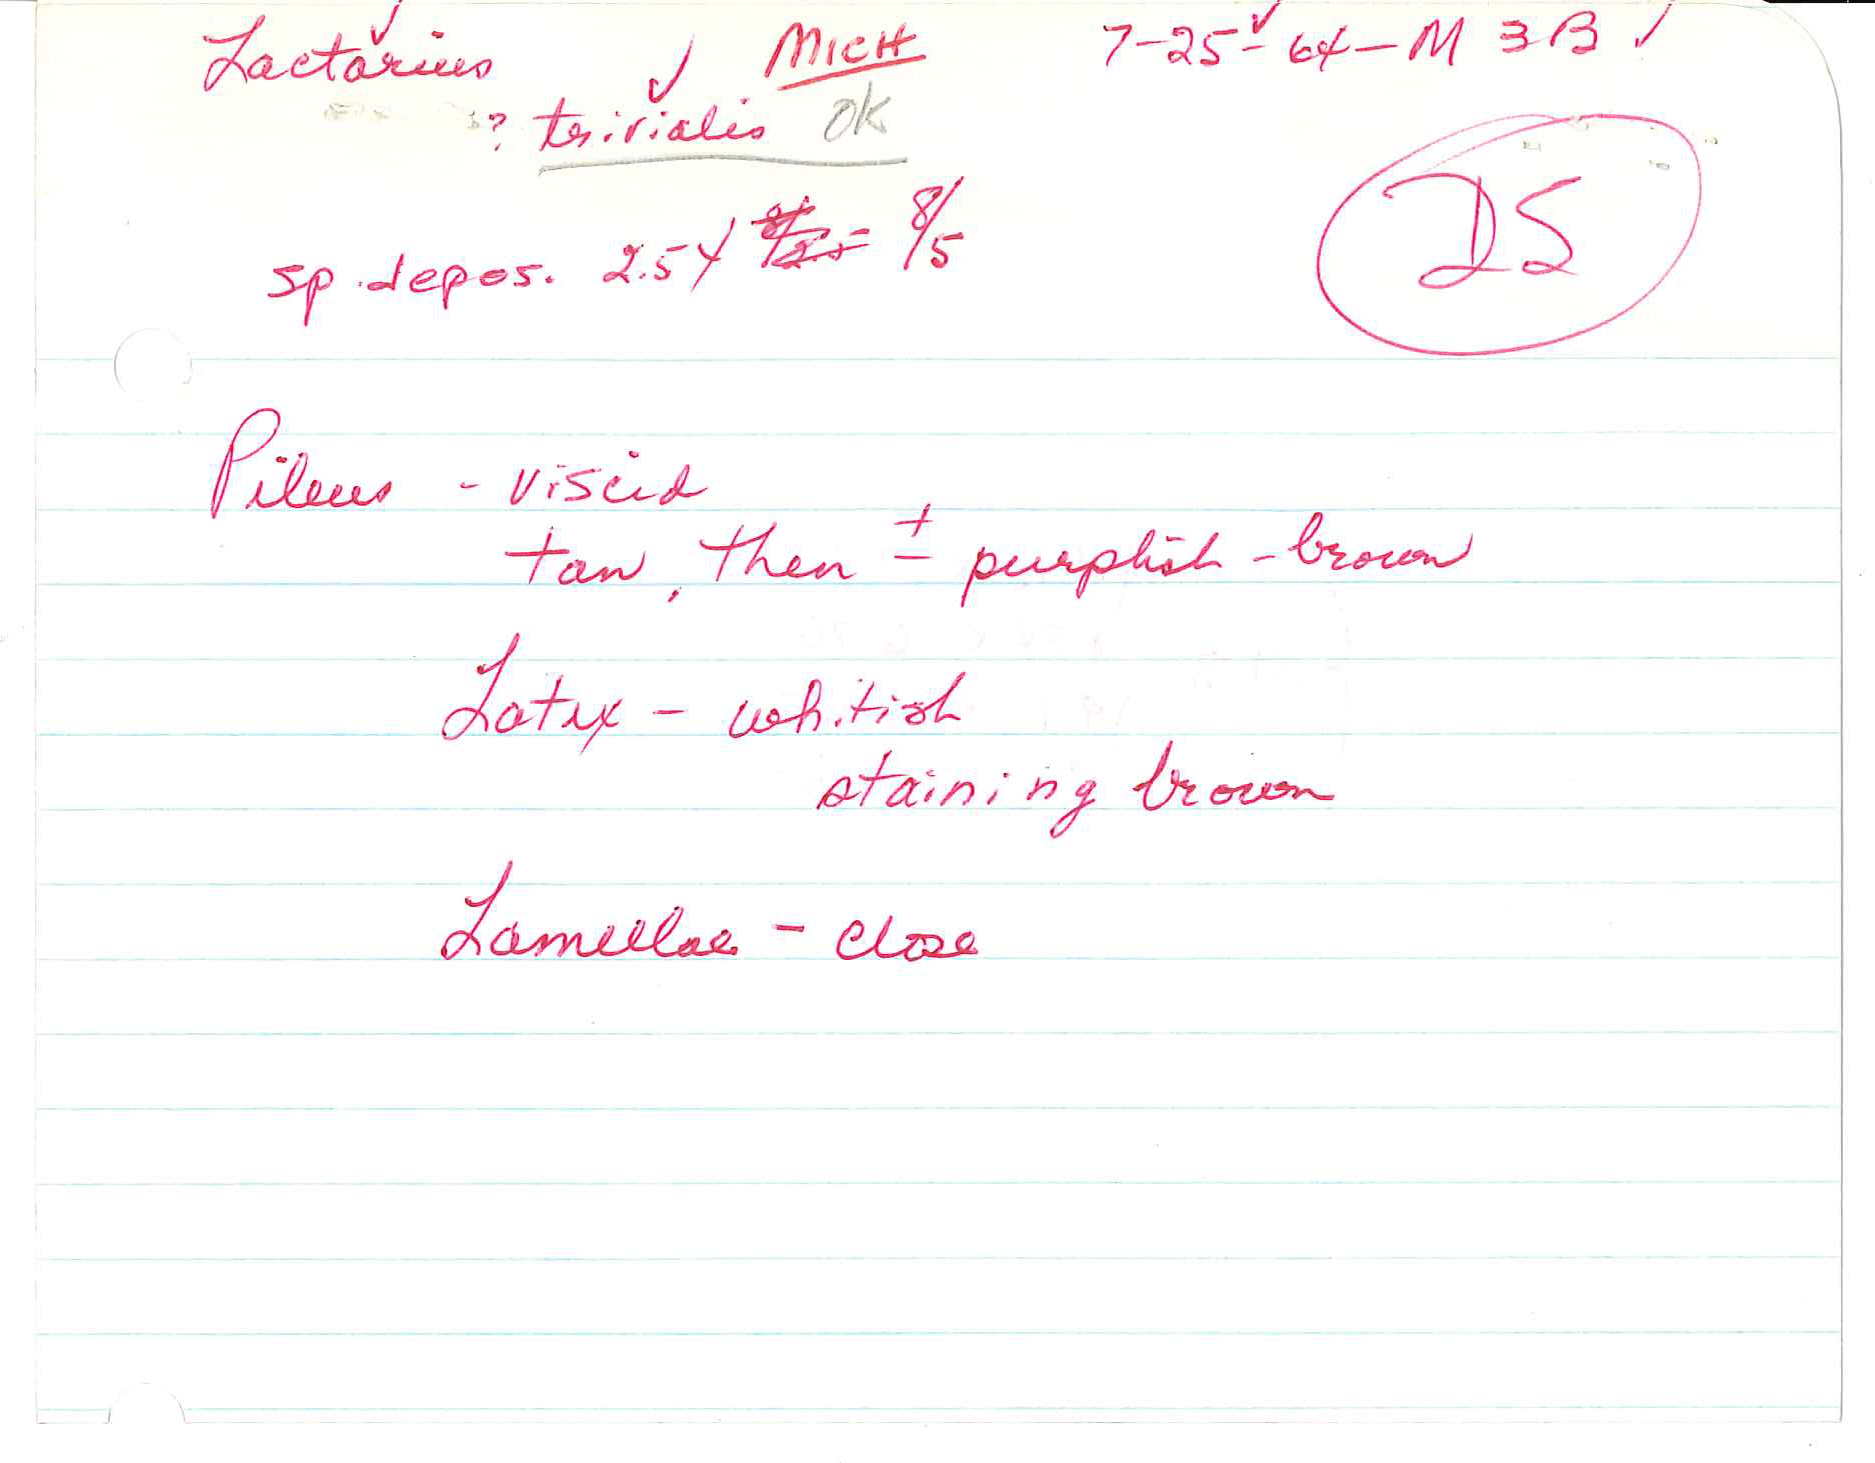 Lactarius ✓ MICH 7-25-64-M 3B ✓
? trivialis OK
sp. depos. 2.5Y 8/5
DS
Pileus - viscid
tan, then ± purplish-brown
Latex - whitish
staining brown
Lamellae - close